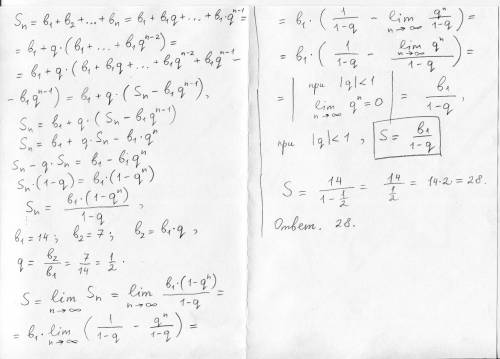 Sₙ = b₁ + b₂ + ... + bₙ = b₁ + b₁q + ... + b₁·qⁿ⁻¹ =
= b₁ + q·(b₁ + ... + b₁qⁿ⁻²) =
= b₁ + q·(b₁ + b₁q + ... + b₁qⁿ⁻² + b₁qⁿ⁻¹ -
- b₁qⁿ⁻¹) = b₁ + q·(Sₙ - b₁qⁿ⁻¹),
Sₙ = b₁ + q·(Sₙ - b₁qⁿ⁻¹)
Sₙ = b₁ + q·Sₙ - b₁·qⁿ
Sₙ - q·Sₙ = b₁ - b₁qⁿ
Sₙ·(1-q) = b₁·(1-qⁿ)
Sₙ = b₁·(1-qⁿ)/(1-q),
b₁ = 14; b₂ = 7; b₂ = b₁·q,
q = b₂/b₁ = 7/14 = 1/2.
S = lim n→∞ Sₙ = lim n→∞ b₁·(1-qⁿ)/(1-q) =
= b₁·lim n→∞ (1/(1-q) - qⁿ/(1-q)) =
= b₁·(1/(1-q) - lim n→∞ qⁿ/(1-q)) =
= b₁·(1/(1-q) - lim n→∞ qⁿ/(1-q)) =
= | при |q|<1 lim n→∞ qⁿ = 0 | = b₁/(1-q),
при |q|<1, S = b₁/(1-q)
S = 14/(1 - 1/2) = 14/(1/2) = 14·2 = 28.
Ответ. 28.